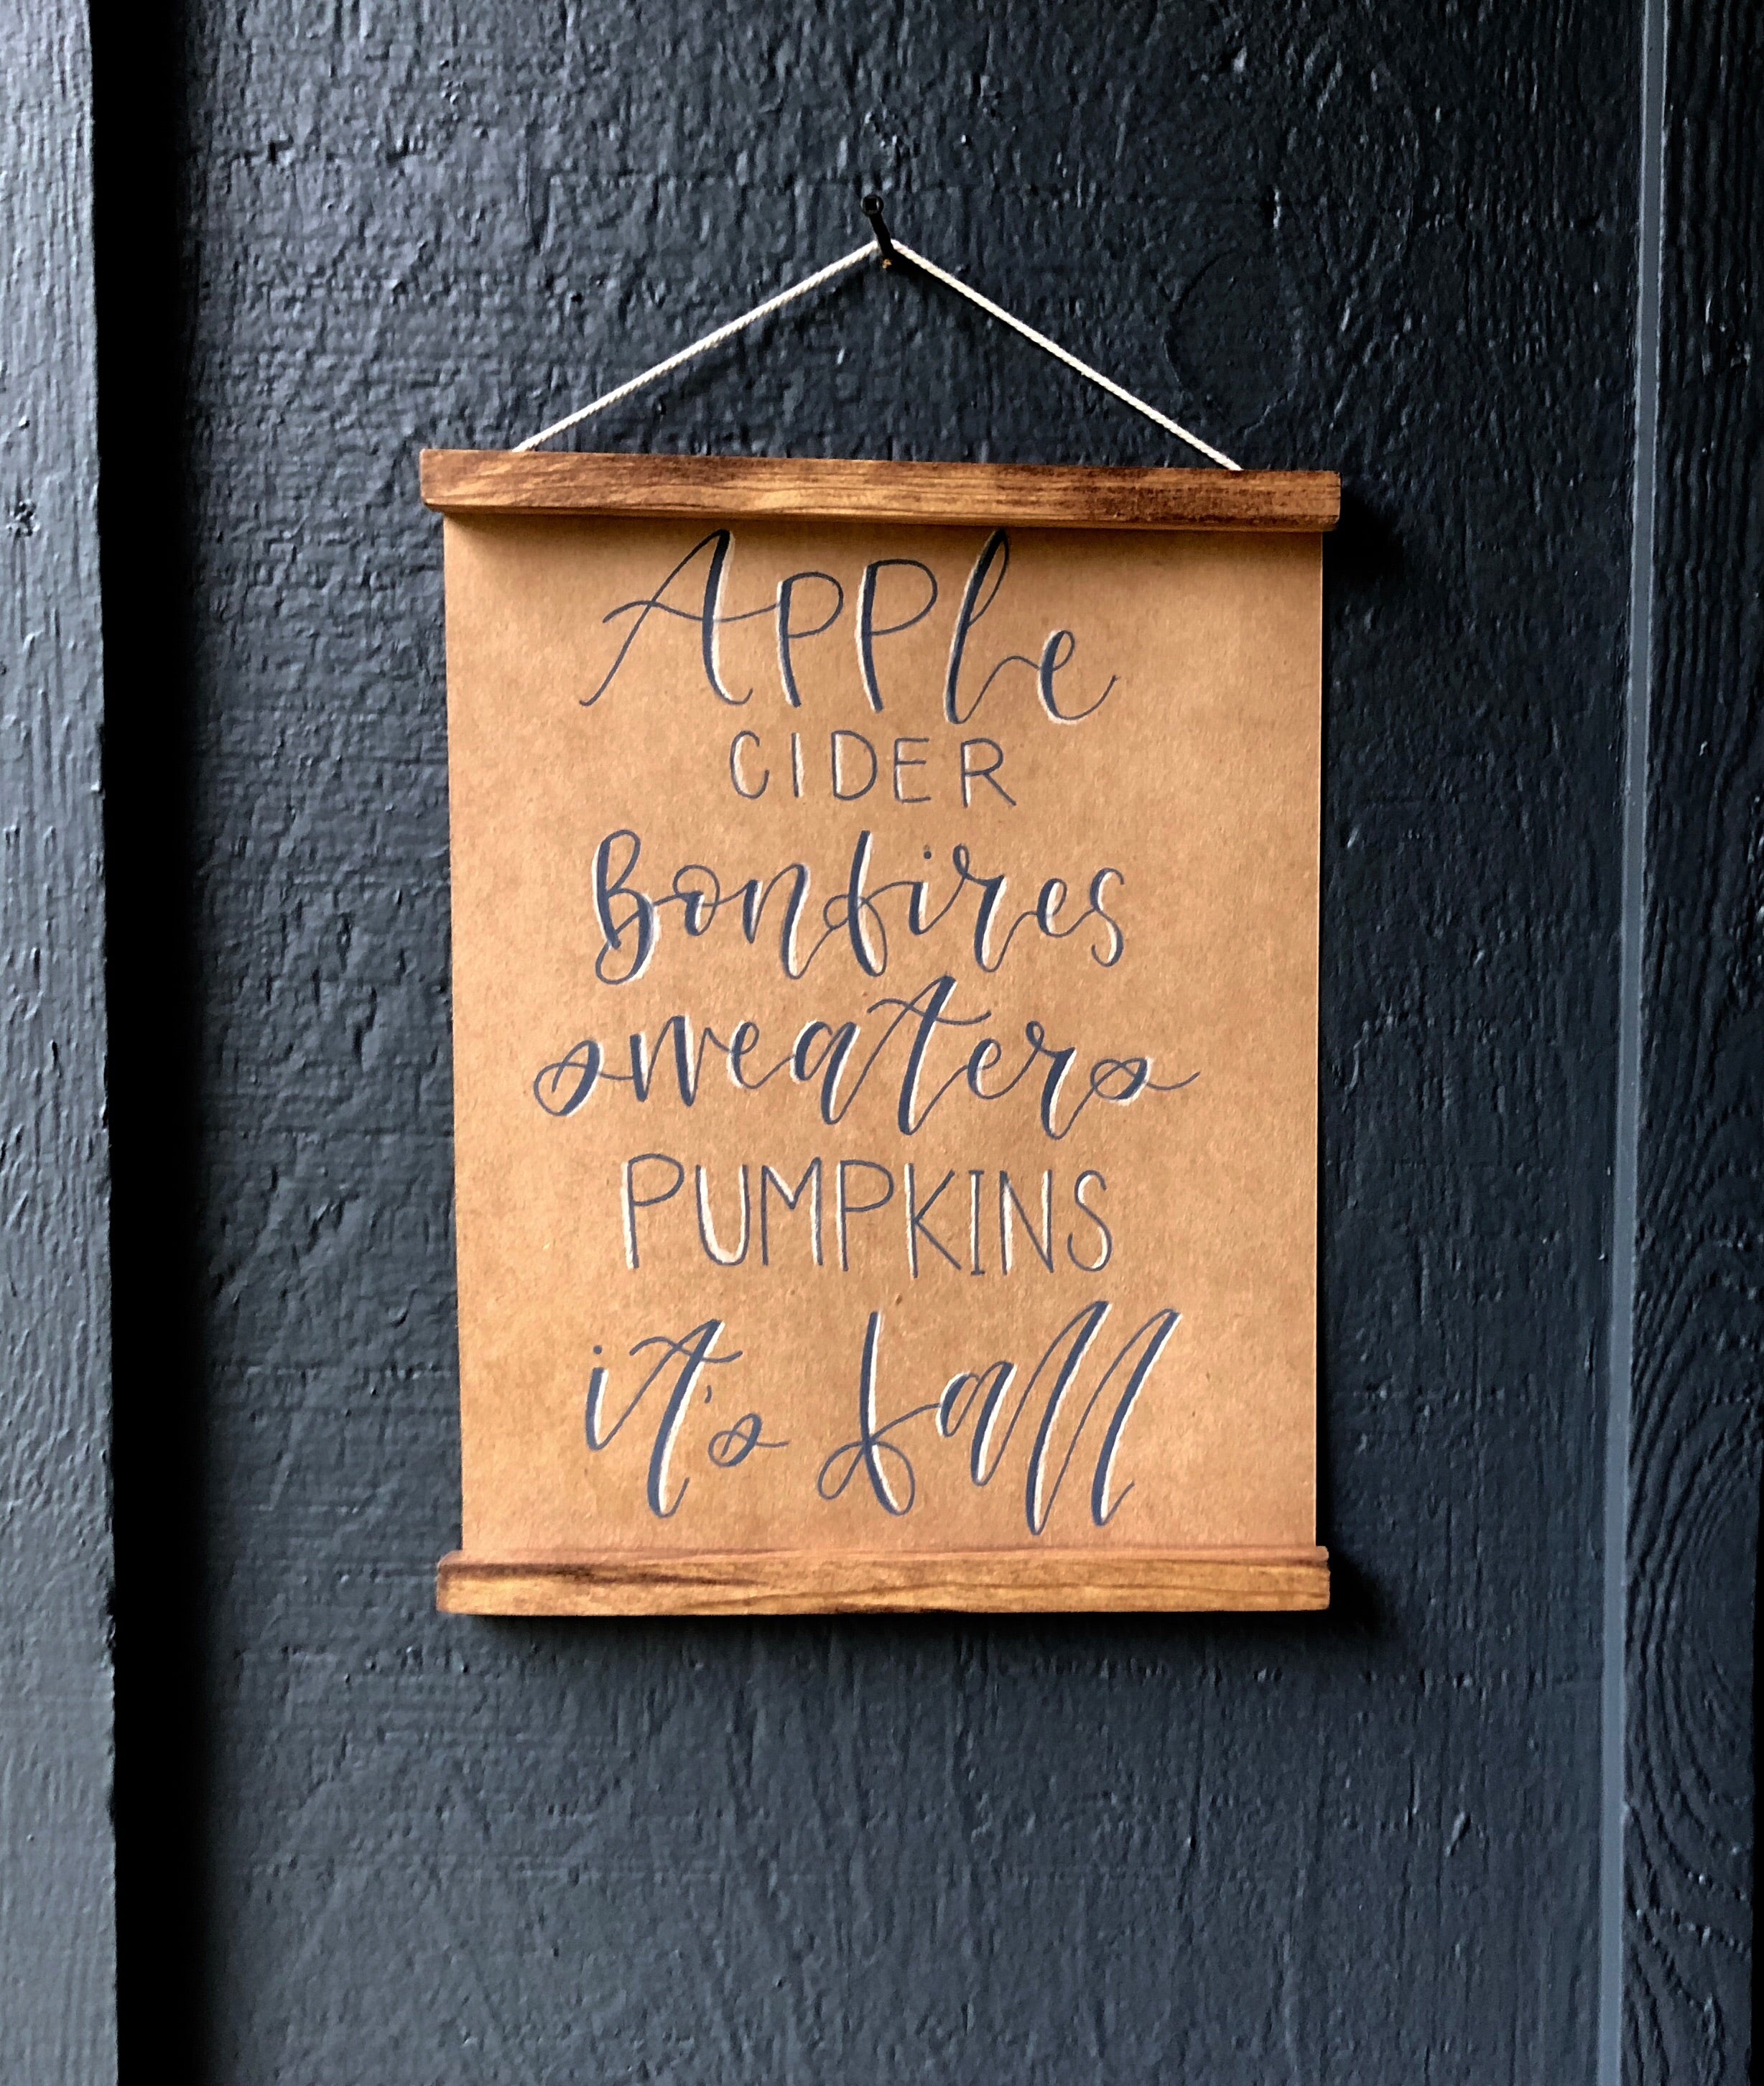 Apple
CIDER
Bonfires
sweaters
PUMPKINS
it's fall